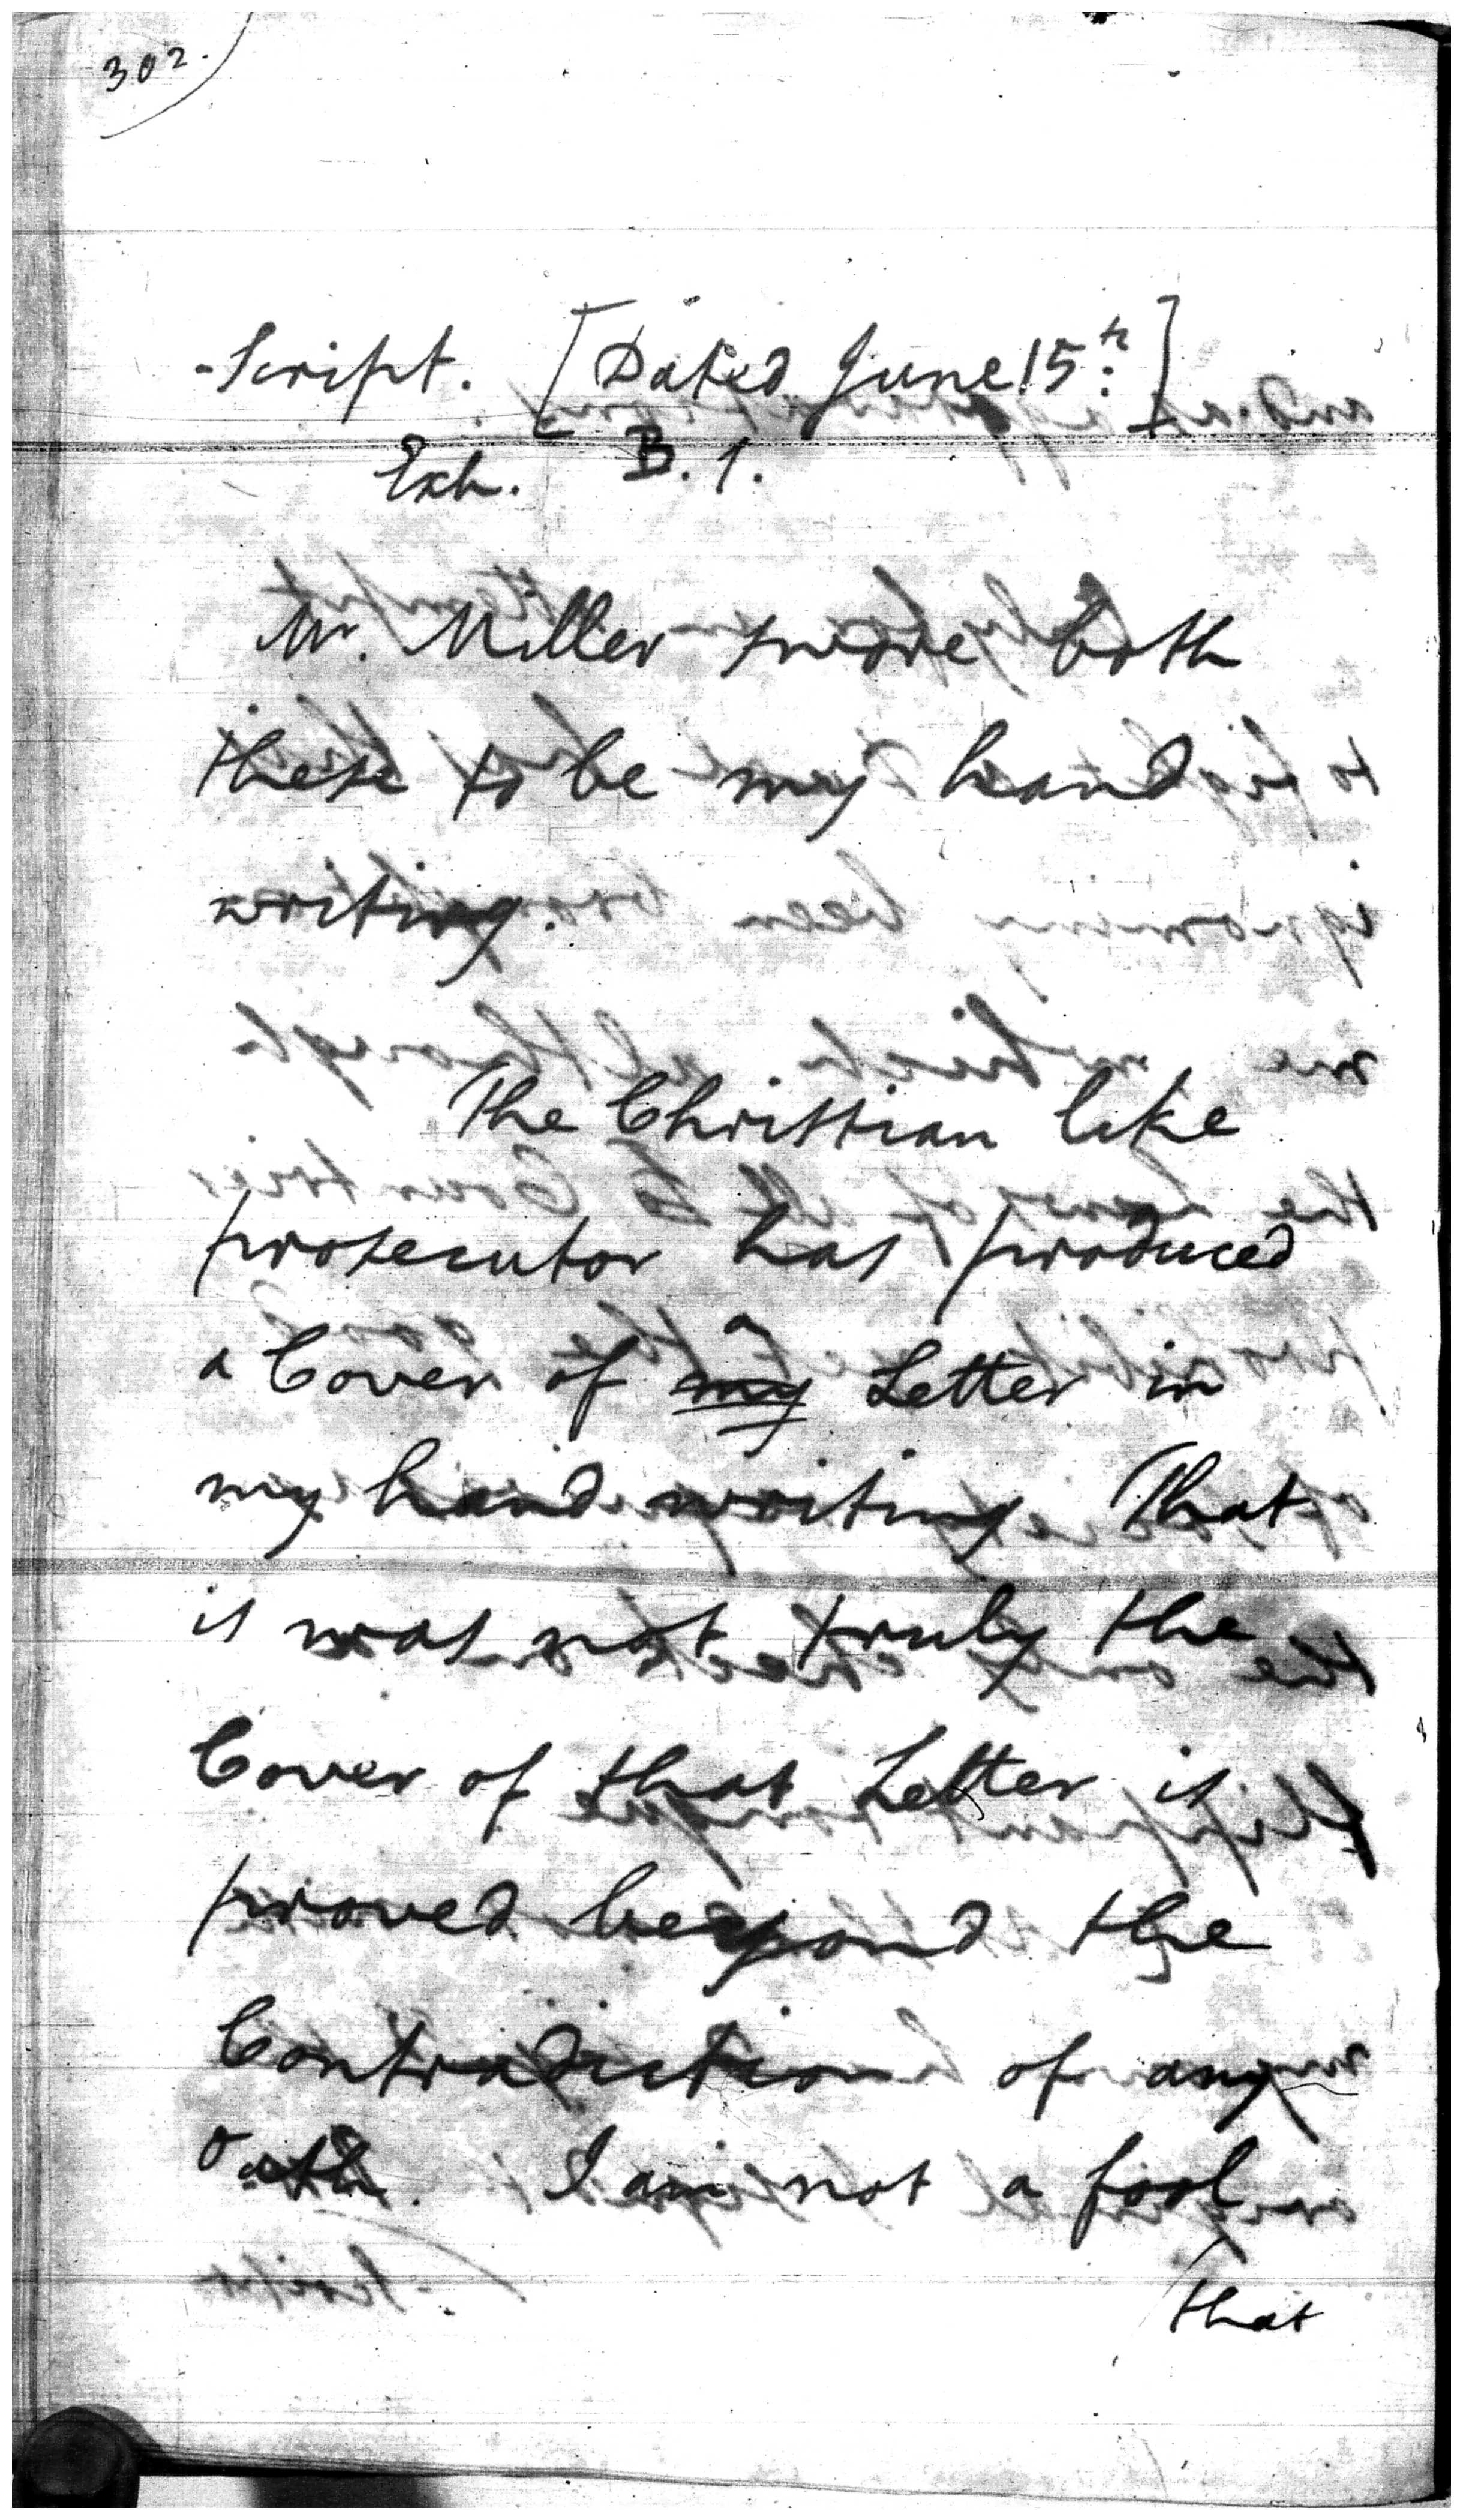 302.
-Script. [Dated June 15th]
Exh. B. 1.
Mr. Miller swore both
these to be my hand
writing.
The Christian like
prosecutor has produced
a
a Cover of my Letter in
my hand writing That
is was not truly the
Cover of that Letter is
proved beyond the
Contradiction of any
Oath. I am not a fool
that